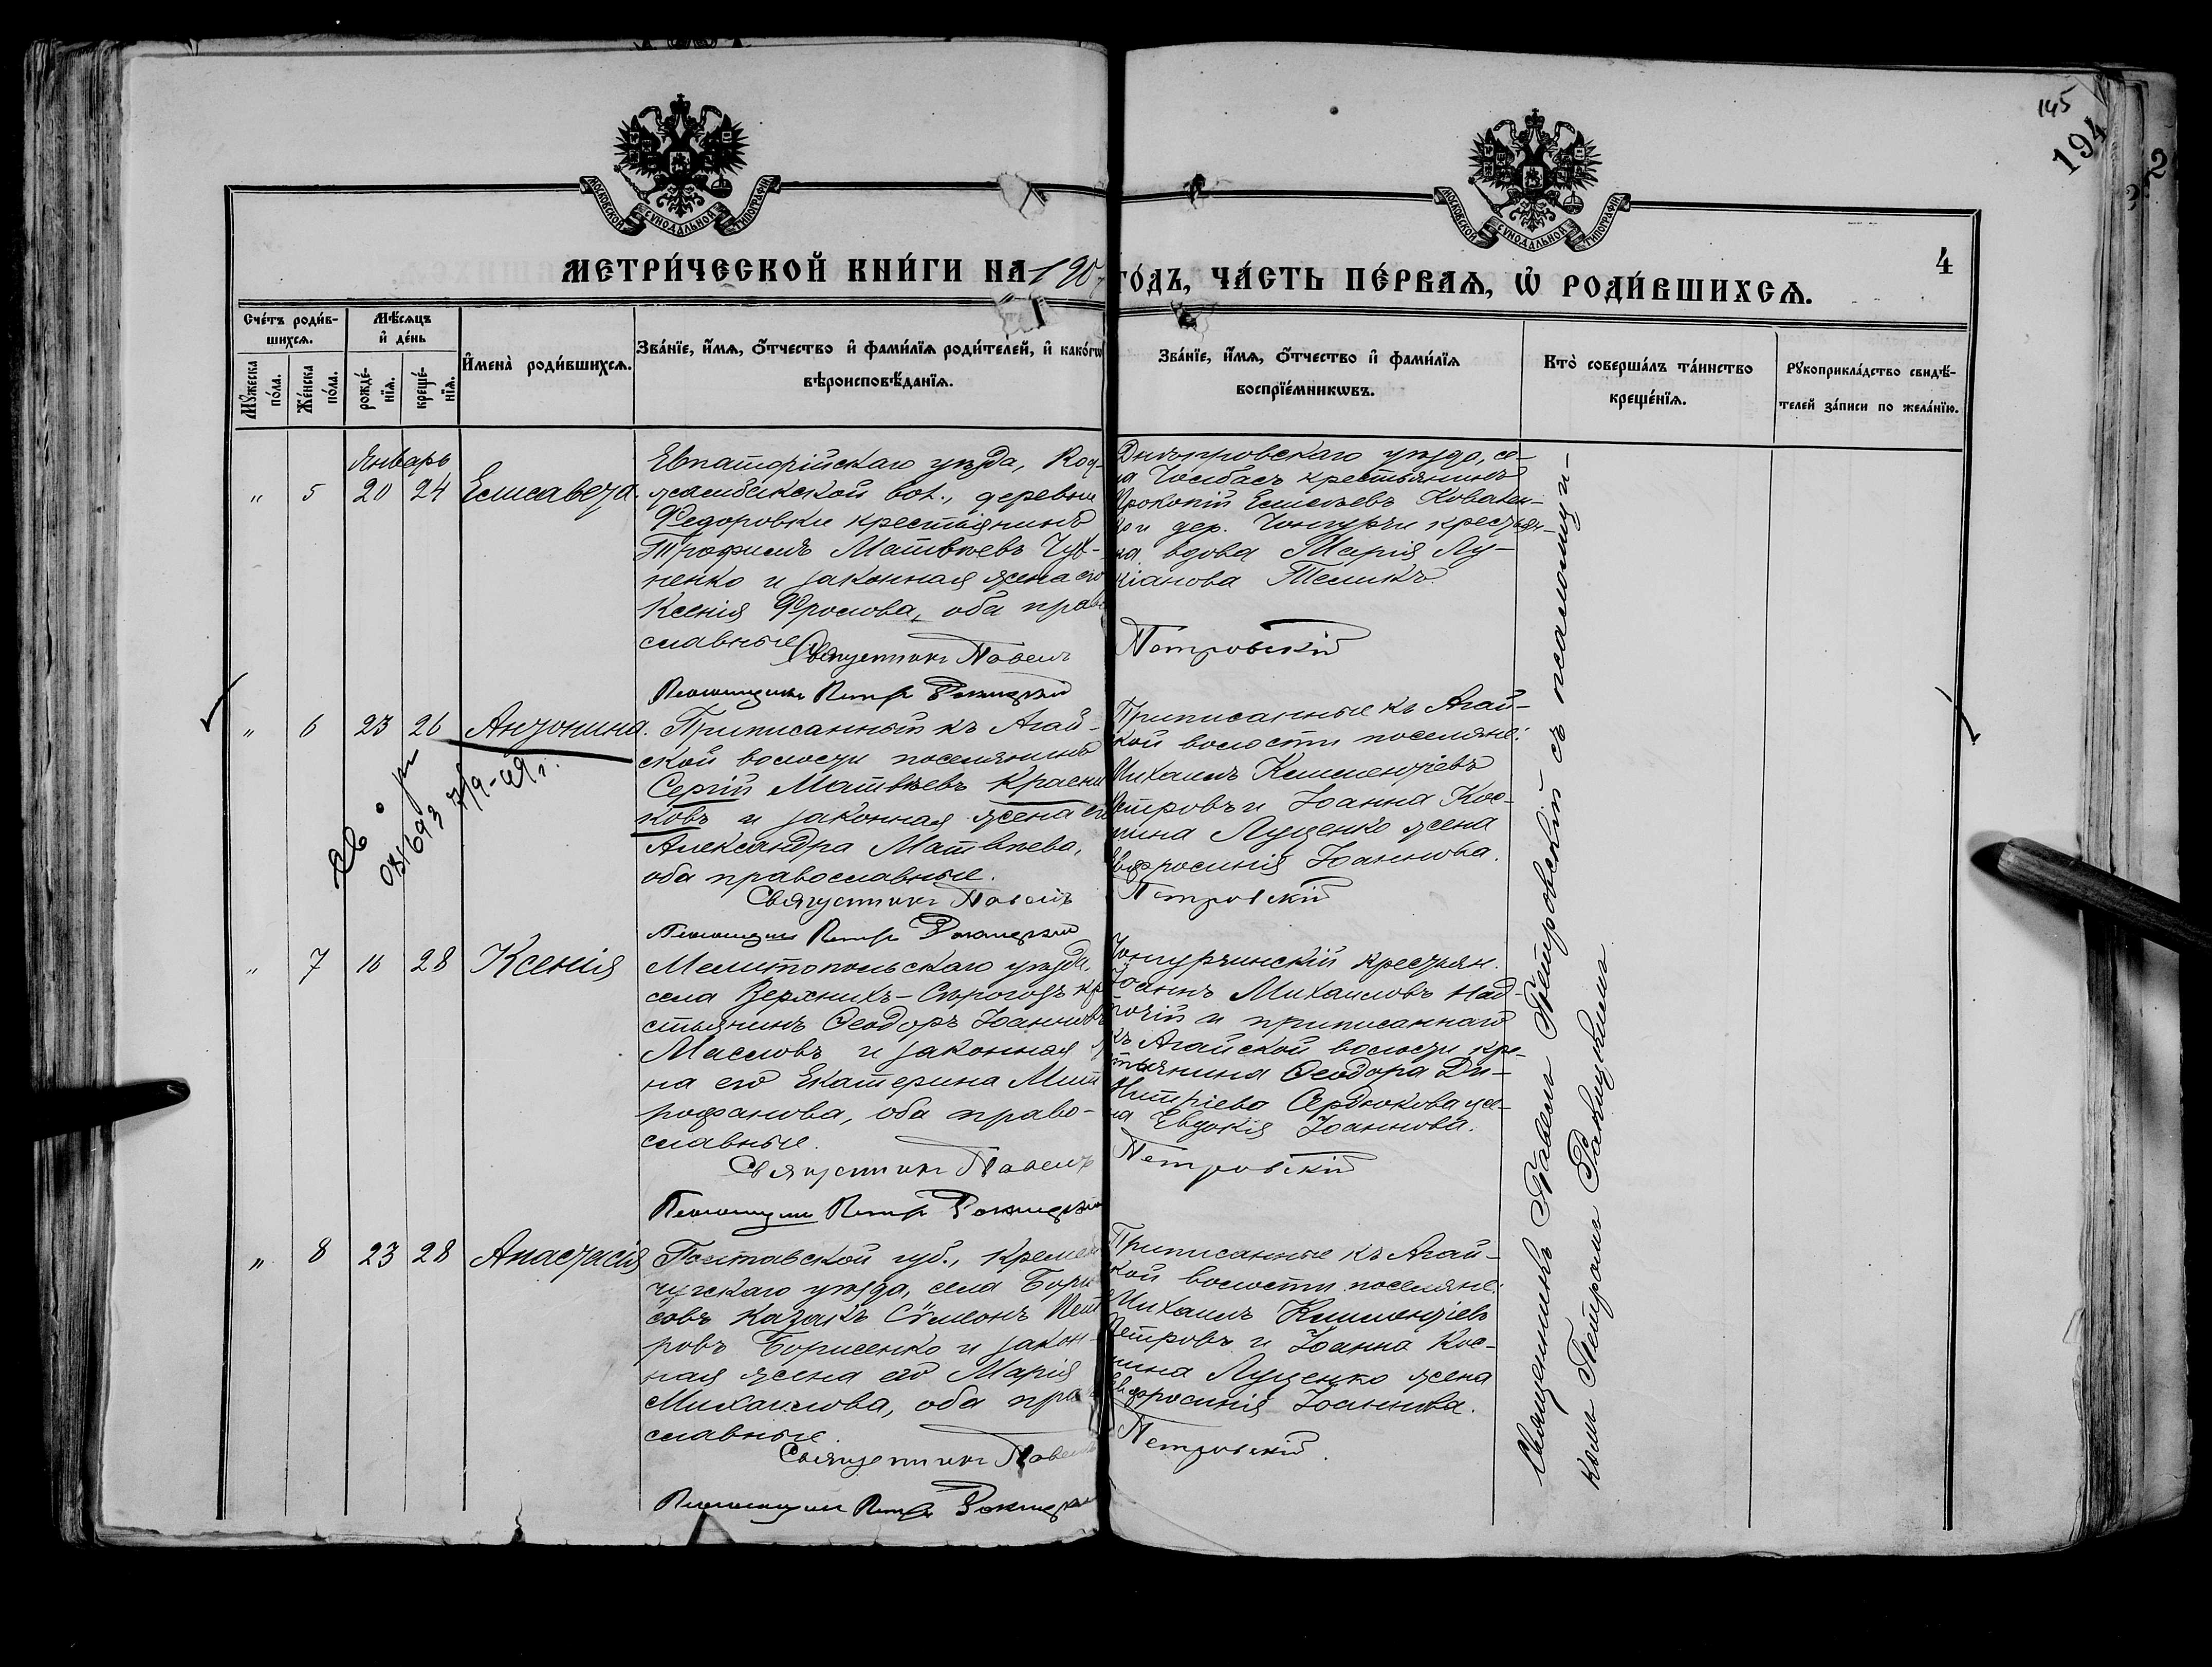 145
194
2
МОСКОВСКОЙ СѴНОДАЛЬНОЙ ТИПОГРАФІИ
МОСКОВСКОЙ СѴНОДАЛЬНОЙ ТИПОГРАФІИ
4
МЕТРИ́ЧЕСКОЙ КНИ́ГИ НА 190
ГО́ДЪ, ЧА́СТЬ ПЕ́РВАЯ, Ѡ҆ РОДИ́ВШИХСЯ.
Сче́тъ роди́в-
шихся.
Мꙋжеска по́ла.
Же́нска по́ла.
Мѣ́сяцъ
и҆ де́нь
рожде́-
нїя.
креще́-
нїя.
И҆мена̀ роди́вшихся.
Зва́нїе, и҆́мя, ѻ҆́тчество и҆ фами́лїя роди́телей, и҆ како́гѡ
вѣроисповѣ́данїя.
Зва́нїе, и҆́мя, ѻ҆́тчество и҆ фами́лїя
воспрїе́мникѡвъ.
Кто̀ соверша́лъ та́инство
креще́нїя.
Рꙋкоприкла́дство свидѣ́-
телей за́писи по жела́нїю.
Январь
" 5 20 24 Елисавета.
Евпаторійскаго уѣзда, Код-
жамбакской вол., деревни
Федоровки крестьянинъ
Трофимъ Матвѣевъ
ненко и законная жена его
Ксенія Фролова, оба право
славные
Священникъ Павелъ
Псаломщикъ Петръ Ракицкій
Днѣпровскаго уѣзда, се-
ла Чолбасъ крестьянинъ
Прокопій Елисѣевъ Ковален-
ко и дер. крестьян-
ка вдова Марія Лу-
кіанова
Петровскій
" 6 23 26 Антонина.
Приписанный къ Агай-
ской волости поселянинъ
Сергій Матвѣевъ Красни
ковъ и законная жена его
Александра Матвѣева,
оба православные.
Священникъ Павелъ
Псаломщикъ Петръ Ракицкій
Приписанные къ Агай-
кой волости поселяне:
Михаилъ Климентіевъ
Петровъ и Іоанна Кос-
мина Луценко жена
Евфросинія Іоаннова.
Петровскій
" 7 16 28 Ксенія
Мелитопольскаго уѣзда,
села Верхнихъ-Сѣрогозъ кр
стьянинъ Ѳеодоръ Іоанновъ
Масловъ и законная ж
на его Екатерина Мит
рофанова, оба право-
славные.
Священникъ Павелъ
Псаломщикъ Петръ Ракицкій
крестьян.
Іоаннъ Михаиловъ Над-
точій и приписаннаго
къ Агайской волости кре-
стьянина Ѳеодора Ди-
митріева Сердюкова же-
на Евдокія Іоаннова.
Петровскій
" 8 23 28 Анастасія
Полтавской губ., Кремен
чугскаго уѣзда, села Бори
совъ казакъ Сѵмеонъ Пет
ровъ Борисенко и закон-
ная жена его Марія
Михаилова, оба пра
славные.
Священникъ Павелъ
Псаломщикъ Петръ Ракицкій
Приписанные къ Агай-
кой волости поселяне:
Михаилъ Климентіевъ
Петровъ и Іоанна Кос-
мина Луценко жена
Евфросинія Іоаннова.
Петровскій.
Священникъ Павелъ Петровскій съ псаломщи-
комъ Петромъ Ракицкимъ